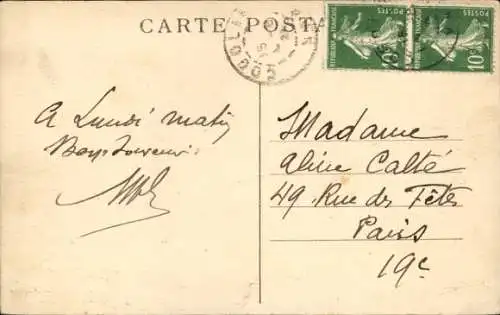 CARTE POSTA
POSTES
10c
POSTES
10c
A Lundi matin
Madame
Aline Calté
49 Rue des Fêtes
Paris
19e